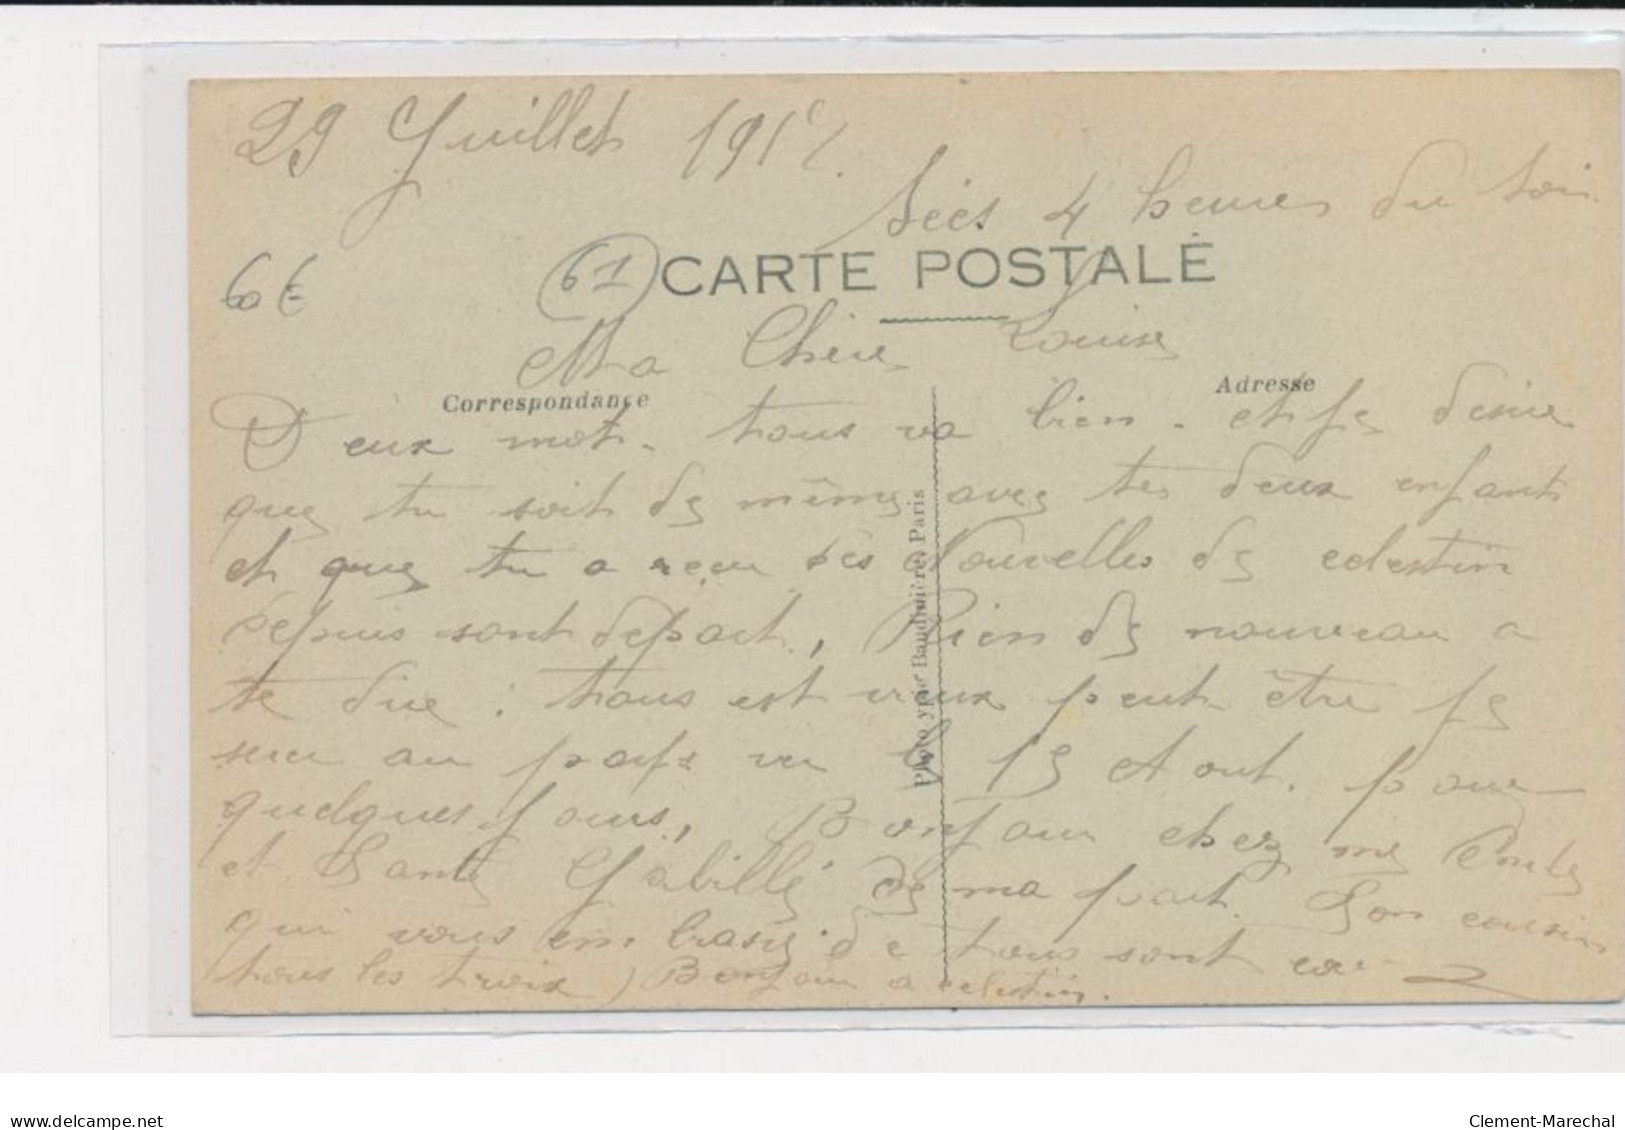 29 Juillet 191
Sées 4 heures du soir
6€ 61 CARTE POSTALE
Ma Chère Louise
Correspondance Adresse
Deux mot. tous va bien. et je désire
que tu soit de même avec tes deux enfants
et que tu a reçu des Nouvelles de celestin
depuis sont depart, Rien de nouveau a
te dire : tous est vieux peut être je
serer au pays ver le 15 Aout. pour
quelques jours, Bonjour chez me
et de ma part. Ton cousin
qui vous embrasse de tous sont cœur
tous les troix) Bonjour a celestin.
Phototypie Baudinière, Paris
delcampe.net
Clement-Marechal